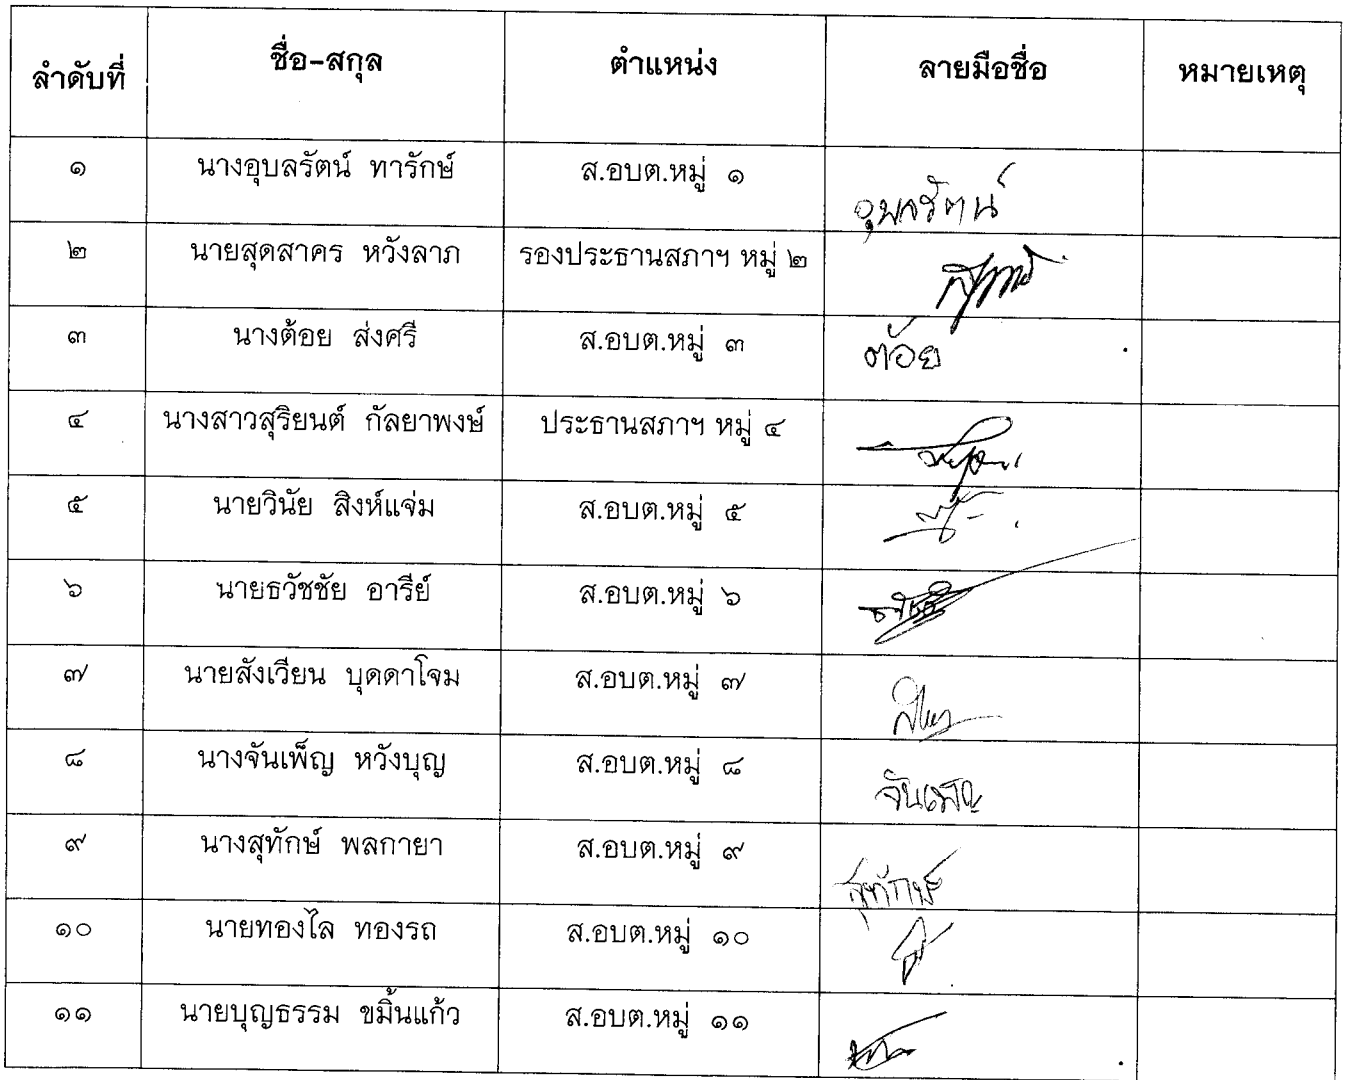 ลำดับที่ ชื่อ-สกุล ตำแหน่ง ลายมือชื่อ หมายเหตุ
๑ นางอุบลรัตน์ ทารักษ์ ส.อบต.หมู่ ๑ อุบลรัตน์
๒ นายสุดสาคร หวังลาภ รองประธานสภาฯ หมู่ ๒
๓ นางต้อย ส่งศรี ส.อบต.หมู่ ๓ ต้อย
๔ นางสาวสุริยนต์ กัลยาพงษ์ ประธานสภาฯ หมู่ ๔
๕ นายวินัย สิงห์แจ่ม ส.อบต.หมู่ ๕
๖ นายธวัชชัย อารีย์ ส.อบต.หมู่ ๖
๗ นายสังเวียน บุดดาโจม ส.อบต.หมู่ ๗
๘ นางจันเพ็ญ หวังบุญ ส.อบต.หมู่ ๘ จันเพ็ญ
๙ นางสุทักษ์ พลกายา ส.อบต.หมู่ ๙ สุทักษ์
๑๐ นายทองไล ทองรถ ส.อบต.หมู่ ๑๐
๑๑ นายบุญธรรม ขมิ้นแก้ว ส.อบต.หมู่ ๑๑